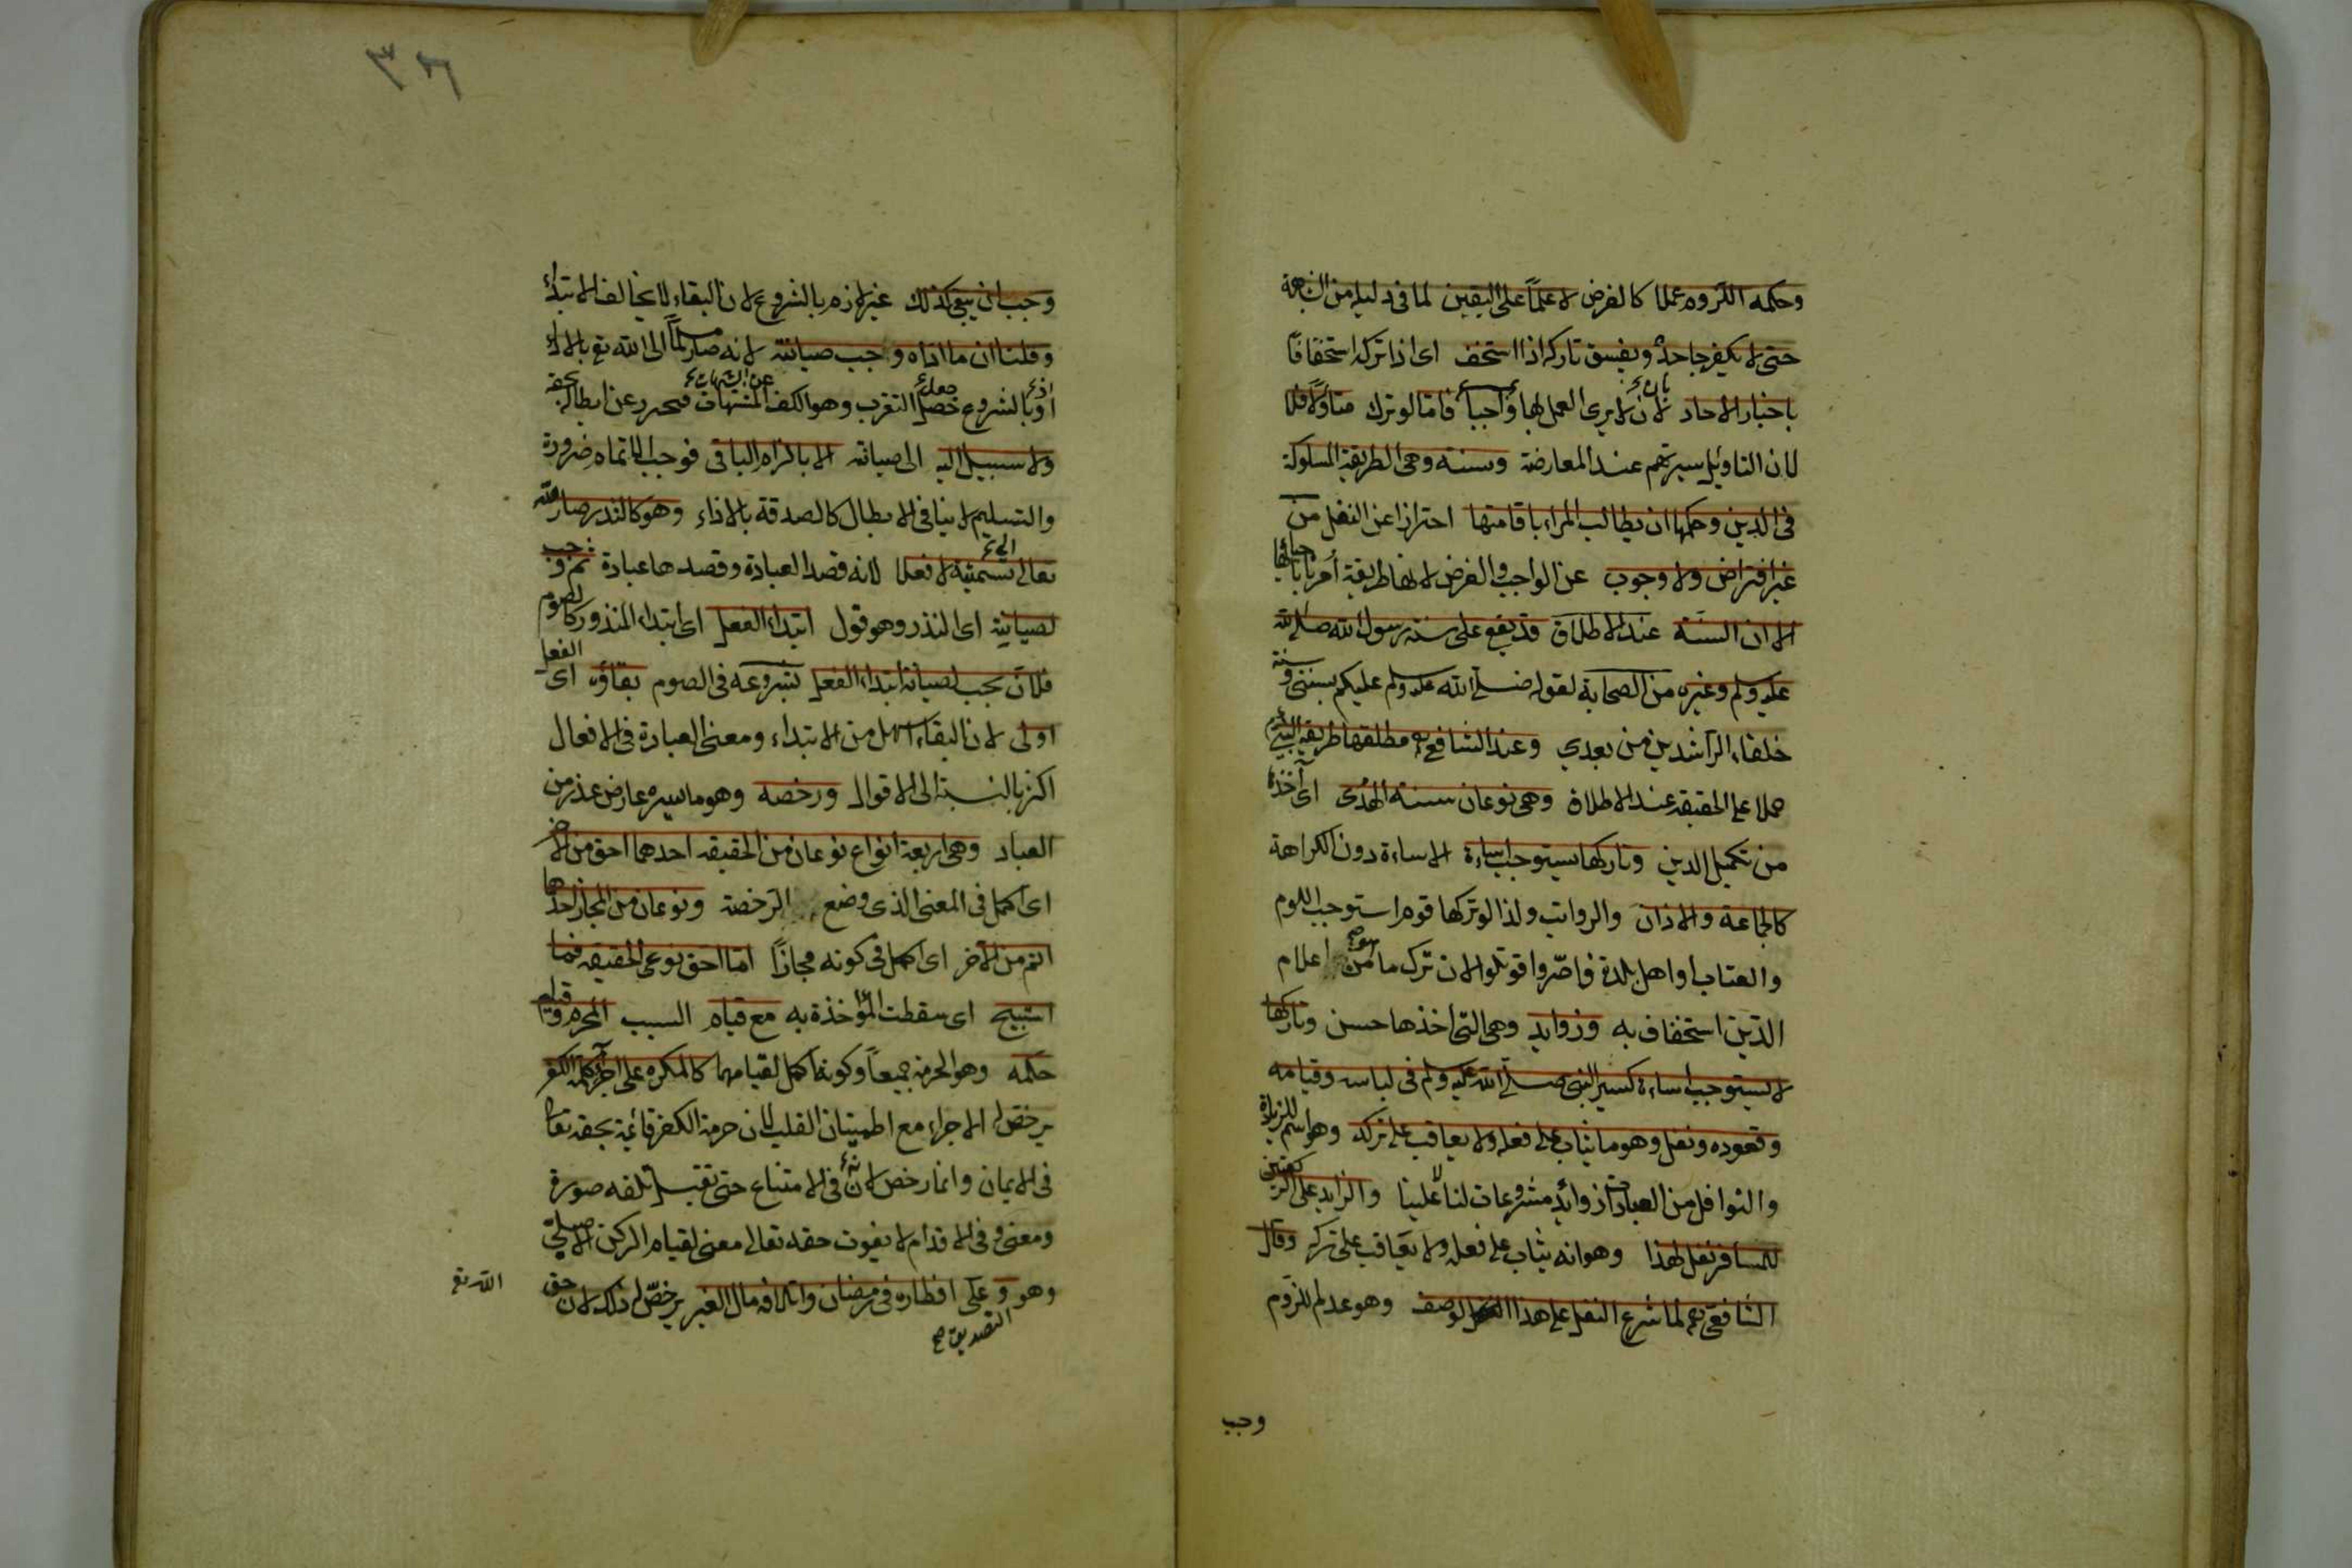 وحكمه اللزوم عملا كالفرض لا علمًا على اليقين لما فى دليله من الشبهة
حتى لا يكفر جاحده ويفسق تاركه اذا استخف اى اذا تركه استخفافًا
باخبار الاحاد بان لا يرى العمل بها واجبا فامّا لو ترك متأولًا فلا
لان التاويل سيرتهم عند المعارضة وسنة وهى الطريقة المسلوكة
فى الدين وحكمها ان يطالب المرء باقامتها احترازا عن النفل من
غير افتراض ولا وجوب عن الواجب والفرض لانها طريقة أمرنا باحيائها
الا ان السنة عند الاطلاق قد يقع على سنة رسول الله صلى الله
عليه وسلم وغيره من الصحابة لقوله صلى الله عليه وسلم عليكم بسنتى وسنة
خلفاء الراشدين من بعدى وعند الشافعى مطلقها طريقة النبى
حملا على الحقيقة عند الاطلاق وهى نوعان سنة الهدى اى أخذه
من تكميل الدين وتاركها يستوجب اساءة الاساءة دون الكراهة
كالجماعة والاذان والرواتب ولذا لو تركها قوم استوجب اللوم
والعتاب او اهل بلدة فاصّروا قوتلوا لان ترك ما هو من اعلام
الدين استخفاف به وزوايد وهى التى اخذها حسن وتاركها
لا يستوجب اساءة كسير النبى صلى الله عليه وسلم فى لباسه وقيامه
وقعوده ونفل وهو ما يثاب على فعله ولا يعاقب على تركه وهو اسم للزيادة
والنوافل من العبادات زوائد مشروعات لنا لا علينا والزايد على الركعتين
للمسافر نفل لهذا وهو انه يثاب على فعله ولا يعاقب على تركه وقال
الشافعى لما شرع النفل على هذا الوصف وهو عدم اللزوم
وجب
٣٢٦
وجب ان يبقى كذلك غير لازم بالشروع لان البقاء لا يخالف الابتداء
وقلنا ان ما اداه وجب صيانته لانه صار مسلّمًا الى الله تع بالاداء
اذ بالشروع حصل فعل التقرب وهو الكف عن المشتهات فيحرز عن ابطاله بحقه
ولا سبيل اليه الى صيانته الا بالزام الباقى فوجب الاتمام ضرورة
والتسليم لا ينافى الابطال كالصدقة بالاذاء وهو كالنذر صار لله
تعالى تسمية لا فعلا لانه قصد العبادة وقصدها عبادة ثم وجب
لصيانته اى النذر وهو قول ابتداء الفعل اى ابتداء المنذور كالصوم
فلان يجب لصيانة ابتداء الفعل بشروعه فى الصوم بقاؤه اى الفعل
اولى لان البقاء اسهل من الابتداء ومعنى العبادة فى الافعال
اكثر بالنسبة الى الاقوال ورخصة وهو ما يسره عارض عذر من
العباد وهى اربعة انواع نوعان من الحقيقة احدهما احق من الاخر
اى اكمل فى المعنى الذى وضع الرخصة ونوعان من المجاز احدهما
اتم من الآخر اى اكمل فى كونه مجازًا امّا احق نوعى الحقيقة فما
استبيح اى سقطت المؤاخذة به مع قيام السبب المحرم وقيام
حكمه وهو الحرمة جميعاً وكونه أكمل لقيامهما كالمكره على اجراء كلمة الكفر
يرخص له الاجراء مع اطمينان القلب لان حرمة الكفر قائمة بحقه تعالى
فى الايمان وانما رخص لان فى الامتناع حتى تقتل تلفه صورة
ومعنى وفى الاقدام لا يفوت حقه تعالى معنى لقيام الركن الاصلى
وهو التصديق صح وعلى افطاره فى رمضان واتلافه مال الغير يرخّص له ذلك لان حق
الله تع